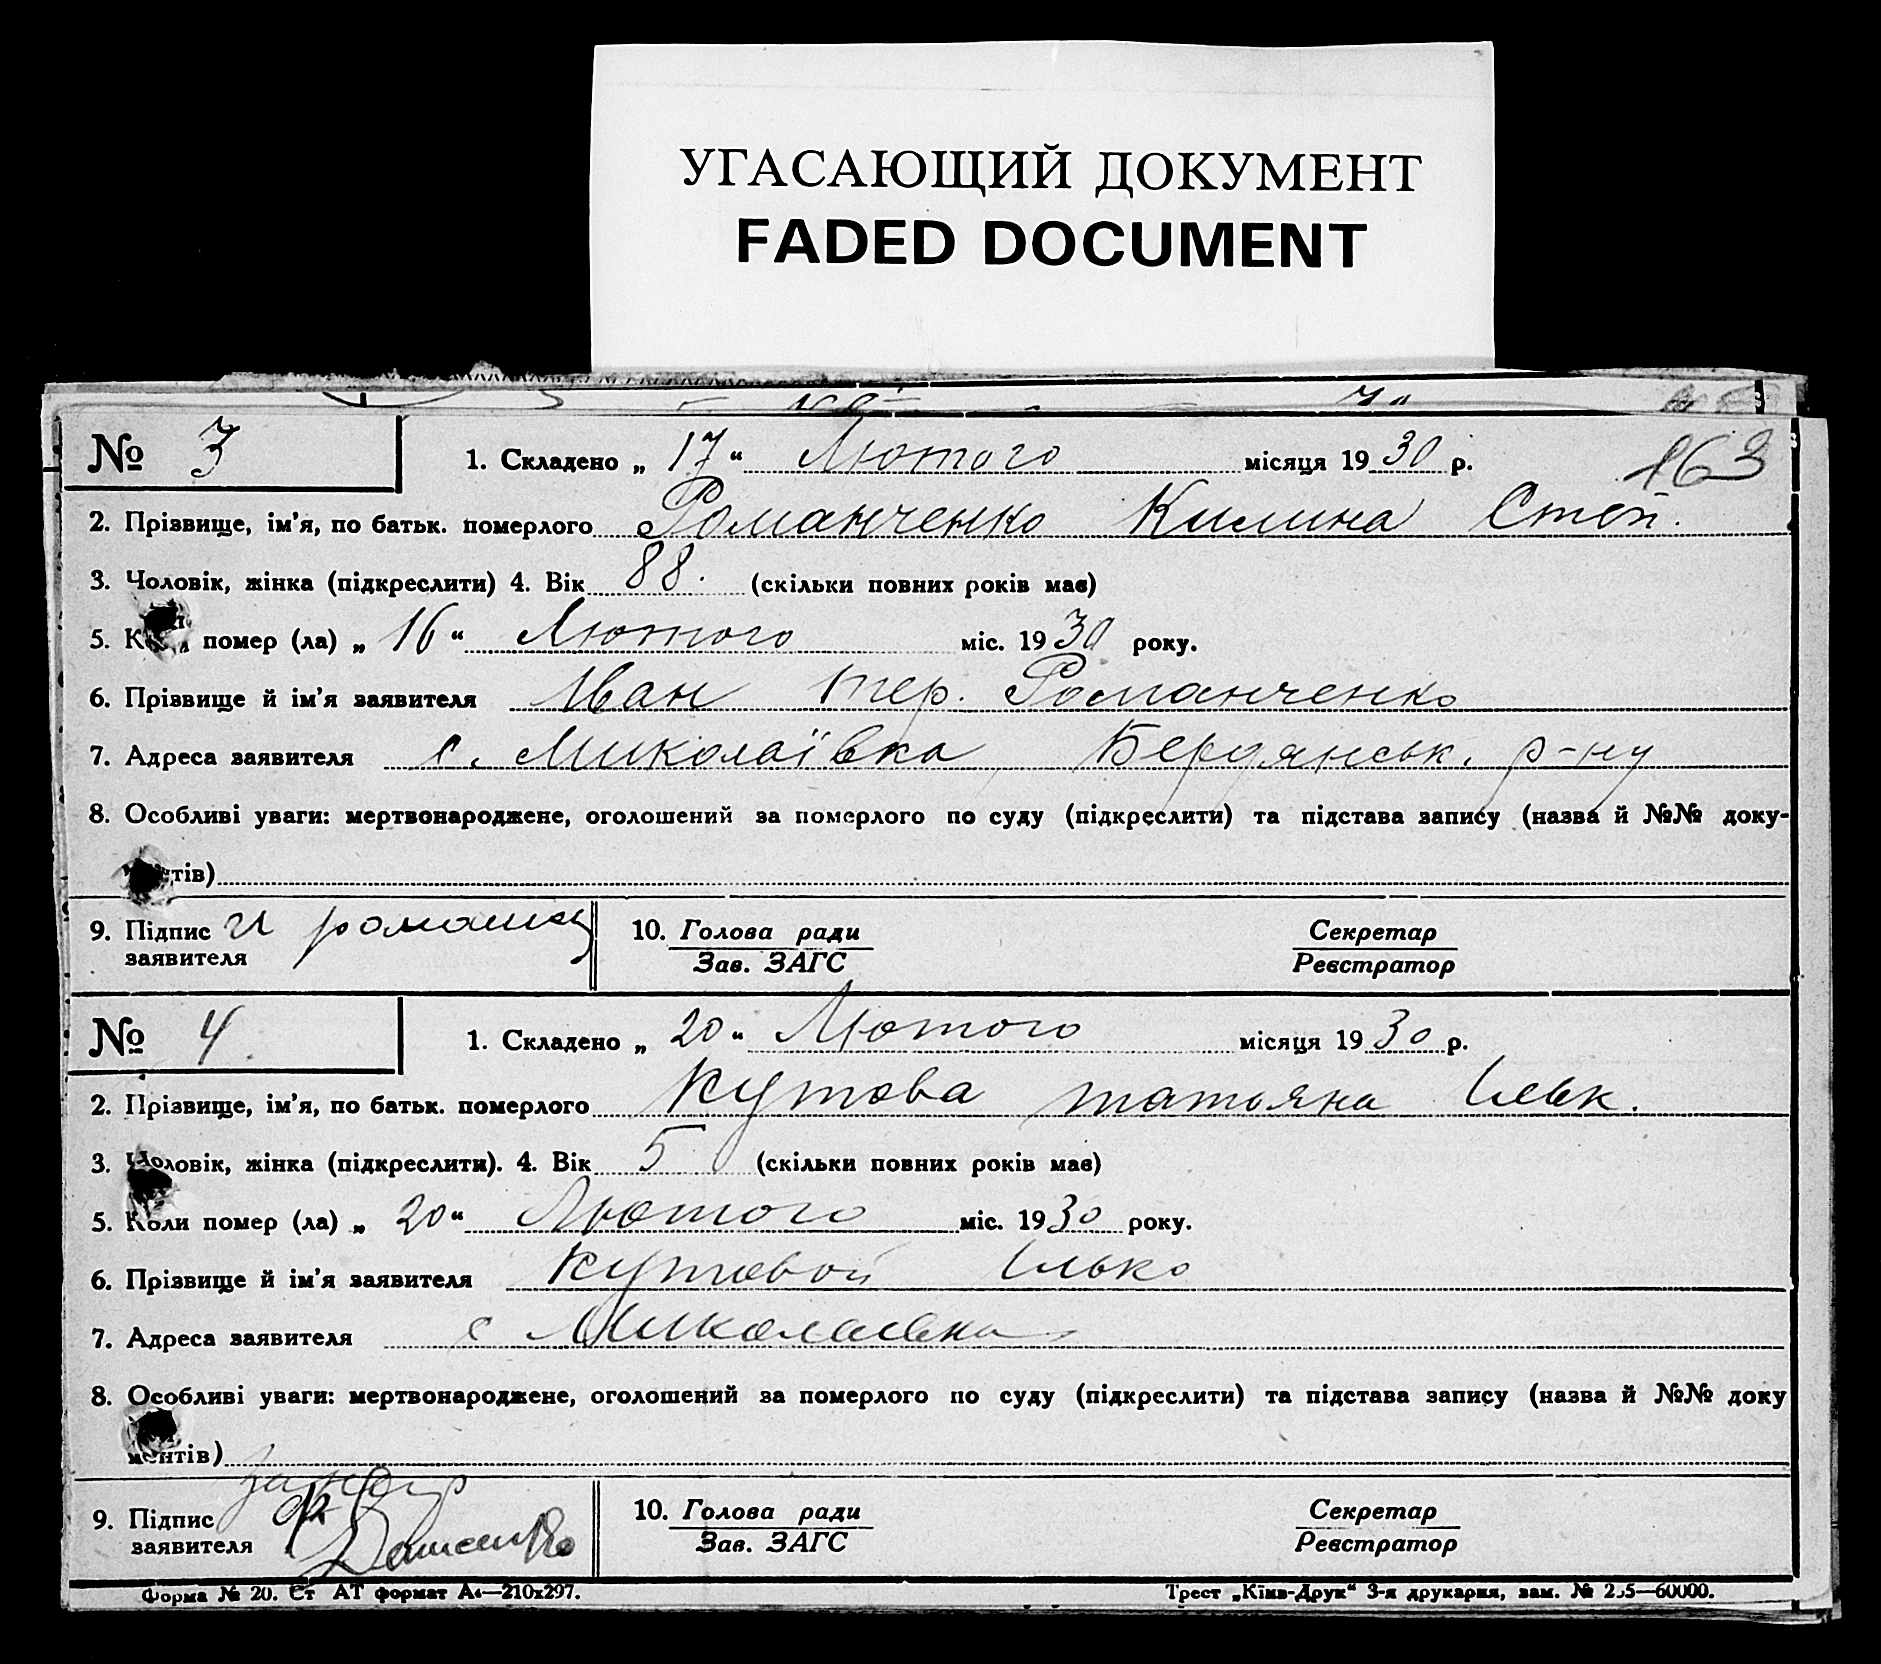 УГАСАЮЩИЙ ДОКУМЕНТ
FADED DOCUMENT
№ 3
1. Складено „ 17 “ Лютого місяця 1930 р.
163
2. Прізвище, ім’я, по батьк. померлого Романченко Килина Степ.
3. Чоловік, жінка (підкреслити) 4. Вік 88. (скільки повних років має)
5. помер (ла) „ 16 “ Лютого міс. 1930 року.
6. Прізвище й ім’я заявителя Іван тер. Романченко
7. Адреса заявителя с. Миколаївка, Бердянськ. р-ну
8. Особливі уваги: мертвонароджене, оголошений за померлого по суду (підкреслити) та підстава запису (назва й №№ доку-
тів)
9. Підпис заявителя И
10. Голова ради Секретар
Зав. ЗАГС Реєстратор
№ 4.
1. Складено „ 20 “ Лютого місяця 1930 р.
2. Прізвище, ім’я, по батьк. померлого Кутова татьяна Ільк.
3. Чоловік, жінка (підкреслити). 4. Вік 5 (скільки повних років має)
5. Коли помер (ла) „ 20 “ Лютого міс. 1930 року.
6. Прізвище й ім’я заявителя Кутовой Ілько
7. Адреса заявителя с Миколаевка
8. Особливі уваги: мертвонароджене, оголошений за померлого по суду (підкреслити) та підстава запису (назва й №№ доку
ментів)
9. Підпис заявителя
10. Голова ради Секретар
Зав. ЗАГС Реєстратор
Форма № 20. Ст АТ формат А4—210х297. Трест „Київ-Друк“ 3-я друкарня, зам. №